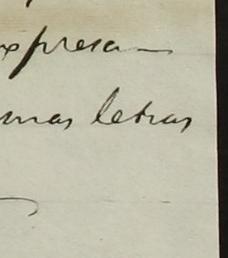 expresa
mas letras